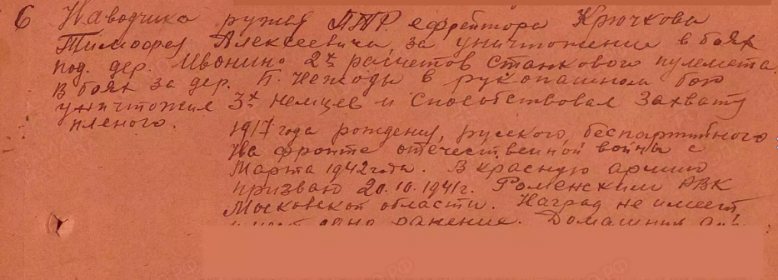 6 Наводчика ружья ПТР ефрейтора Крючкова
Тимофея Алексеевича, за уничтожение в боях
под дер. Ивонино 2х расчетов станкового пулемета.
В боях за дер. Нежоды в рукопашном бою
уничтожил 3х немцев и способствовал захвату
пленого.
1917 года рождения, русского беспартийного
На фронте отечественной войны с
Марта 1942 года. В красную армию
призван 20.10.1941г. Раменским РВК
Московской области. Наград не имеет
одно ранение. Домашний